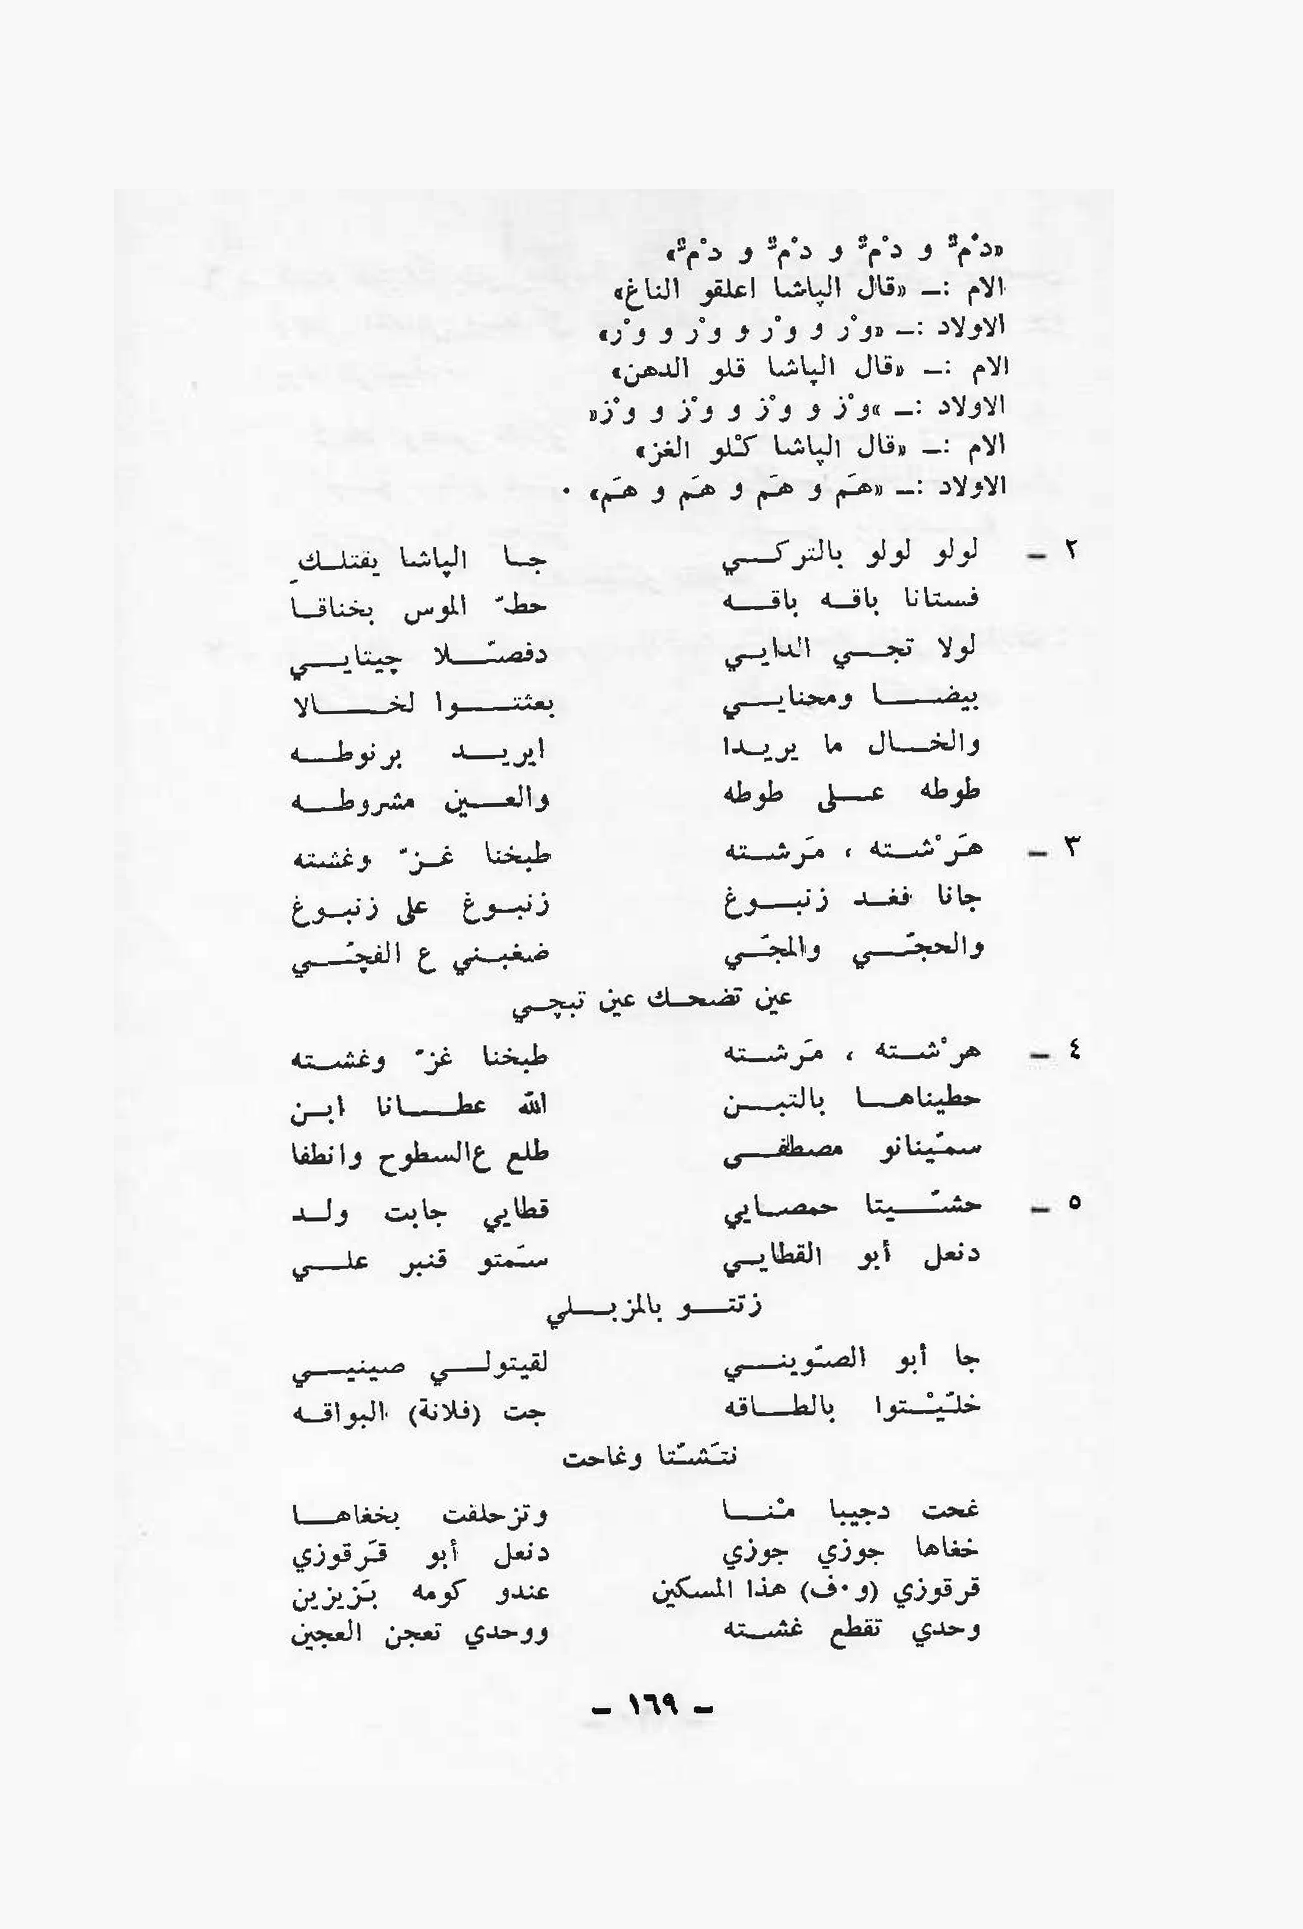 «دْمّ و دْمّ و دْمّ و دْمّ»
الام :ـ «قال الپاشا اعلقو الناغ»
الاولاد :ـ «وْر و وْر و وْر و وْر»
الام :ـ «قال الپاشا قلو الدهن»
الاولاد :ـ »وْز و وْز و وْز و وْز«
الام :ـ «قال الپاشا كْلو الغز»
الاولاد :ـ «همَ و همَ و همَ و همَ» ٠
٢ ـ لولو لولو بالتركي جا الپاشا يقتلكِ
فستانا باقه باقه حطّ الموس بخناقا
لولا تجي الدايي دفصّلا چيتايي
بيضا ومحنايي بعثتوا لخالا
والخال ما يريدا ايريد برنوطه
طوطه على طوطه والعين مشروطه
٣ ـ هَرْشته ، مَرشته طبخنا غزّ وغشته
جانا فغد زنبوغ زنبوغ على زنبوغ
والحجّي والمجّي ضغبني ع الفچّي
عين تضحك عين تبچي
٤ ـ هرْشته ، مَرشته طبخنا غزّ وغشته
حطيناها بالتبن الله عطانا ابن
سمّينانو مصطفى طلع عالسطوح وانطفا
٥ ـ حشّيتا حمصايي قطايي جابت ولد
دنعل أبو القطايي سمَتو قنبر علي
زتتو بالمزبلي
جا أبو الصّويني لقيتولي صينيي
خلّيْتوا بالطاقه جت (فلانة) البواقه
نتَشّتا وغاحت
غحت دجيبا مْنا وتزحلفت بخغاها
خغاها جوزي جوزي دنعل أبو قَرقوزي
قرقوزي (و٠ف) هذا المسكين عندو كومه بَزيزين
وحدي تقطع غشته ووحدي تعجن العجين
ـ ١٦٩ ـ